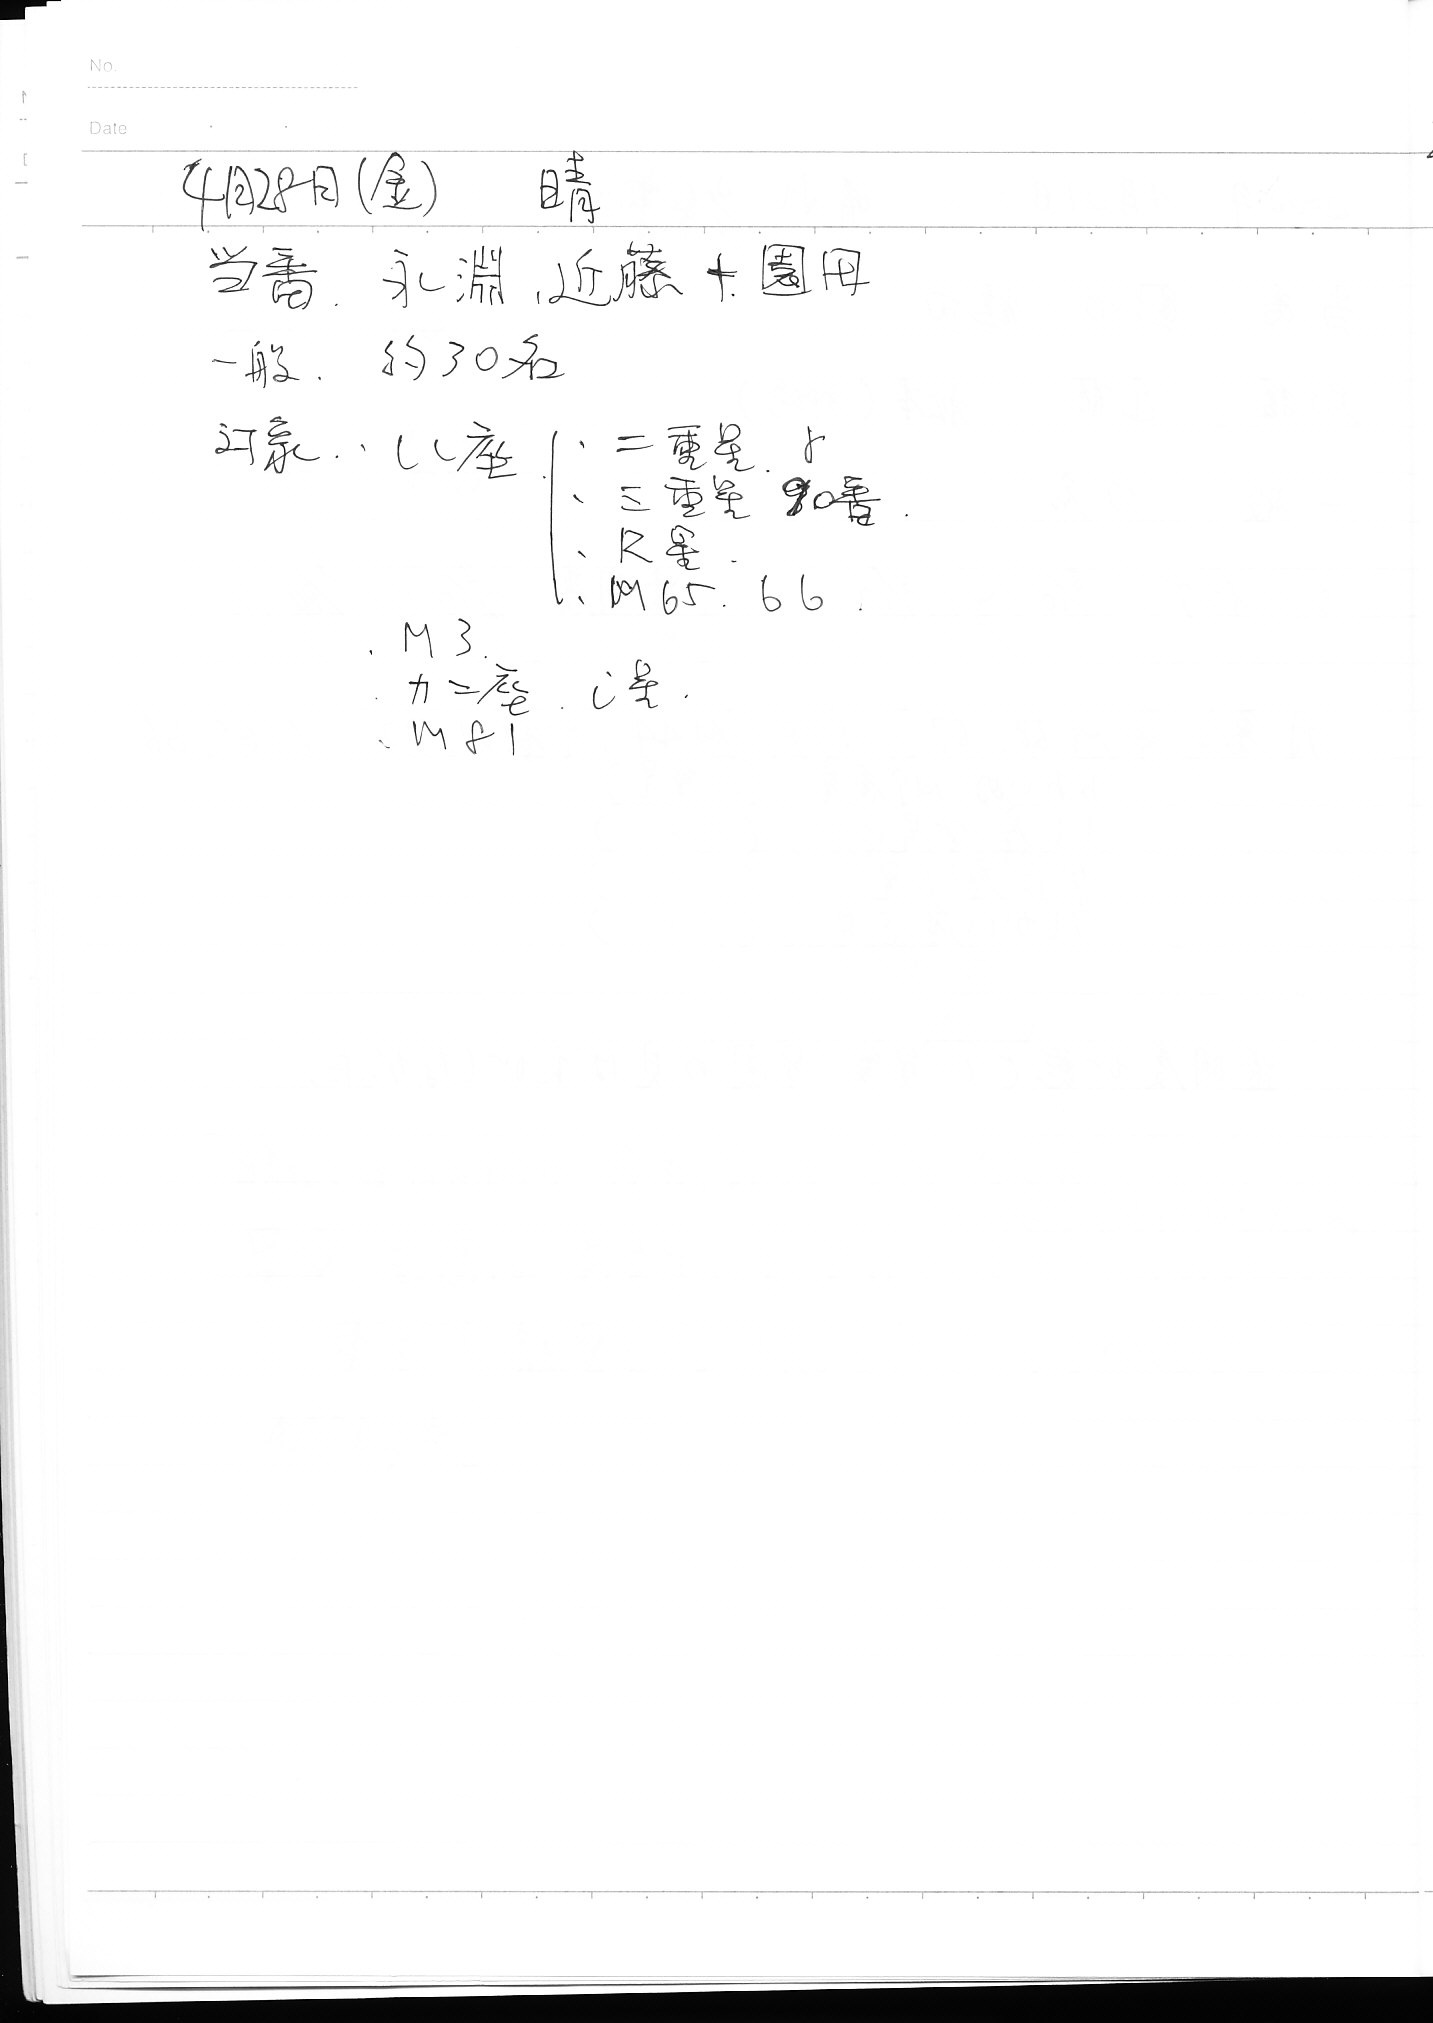 No.
Date
4月28日(金) 晴
当番. 永淵、近藤+園田
一般. 約30名
対象.・しし座 ・二重星. γ
・三重星 90番.
・R星.
・M65. 66.
・M3.
・カニ座. ι星.
・M81